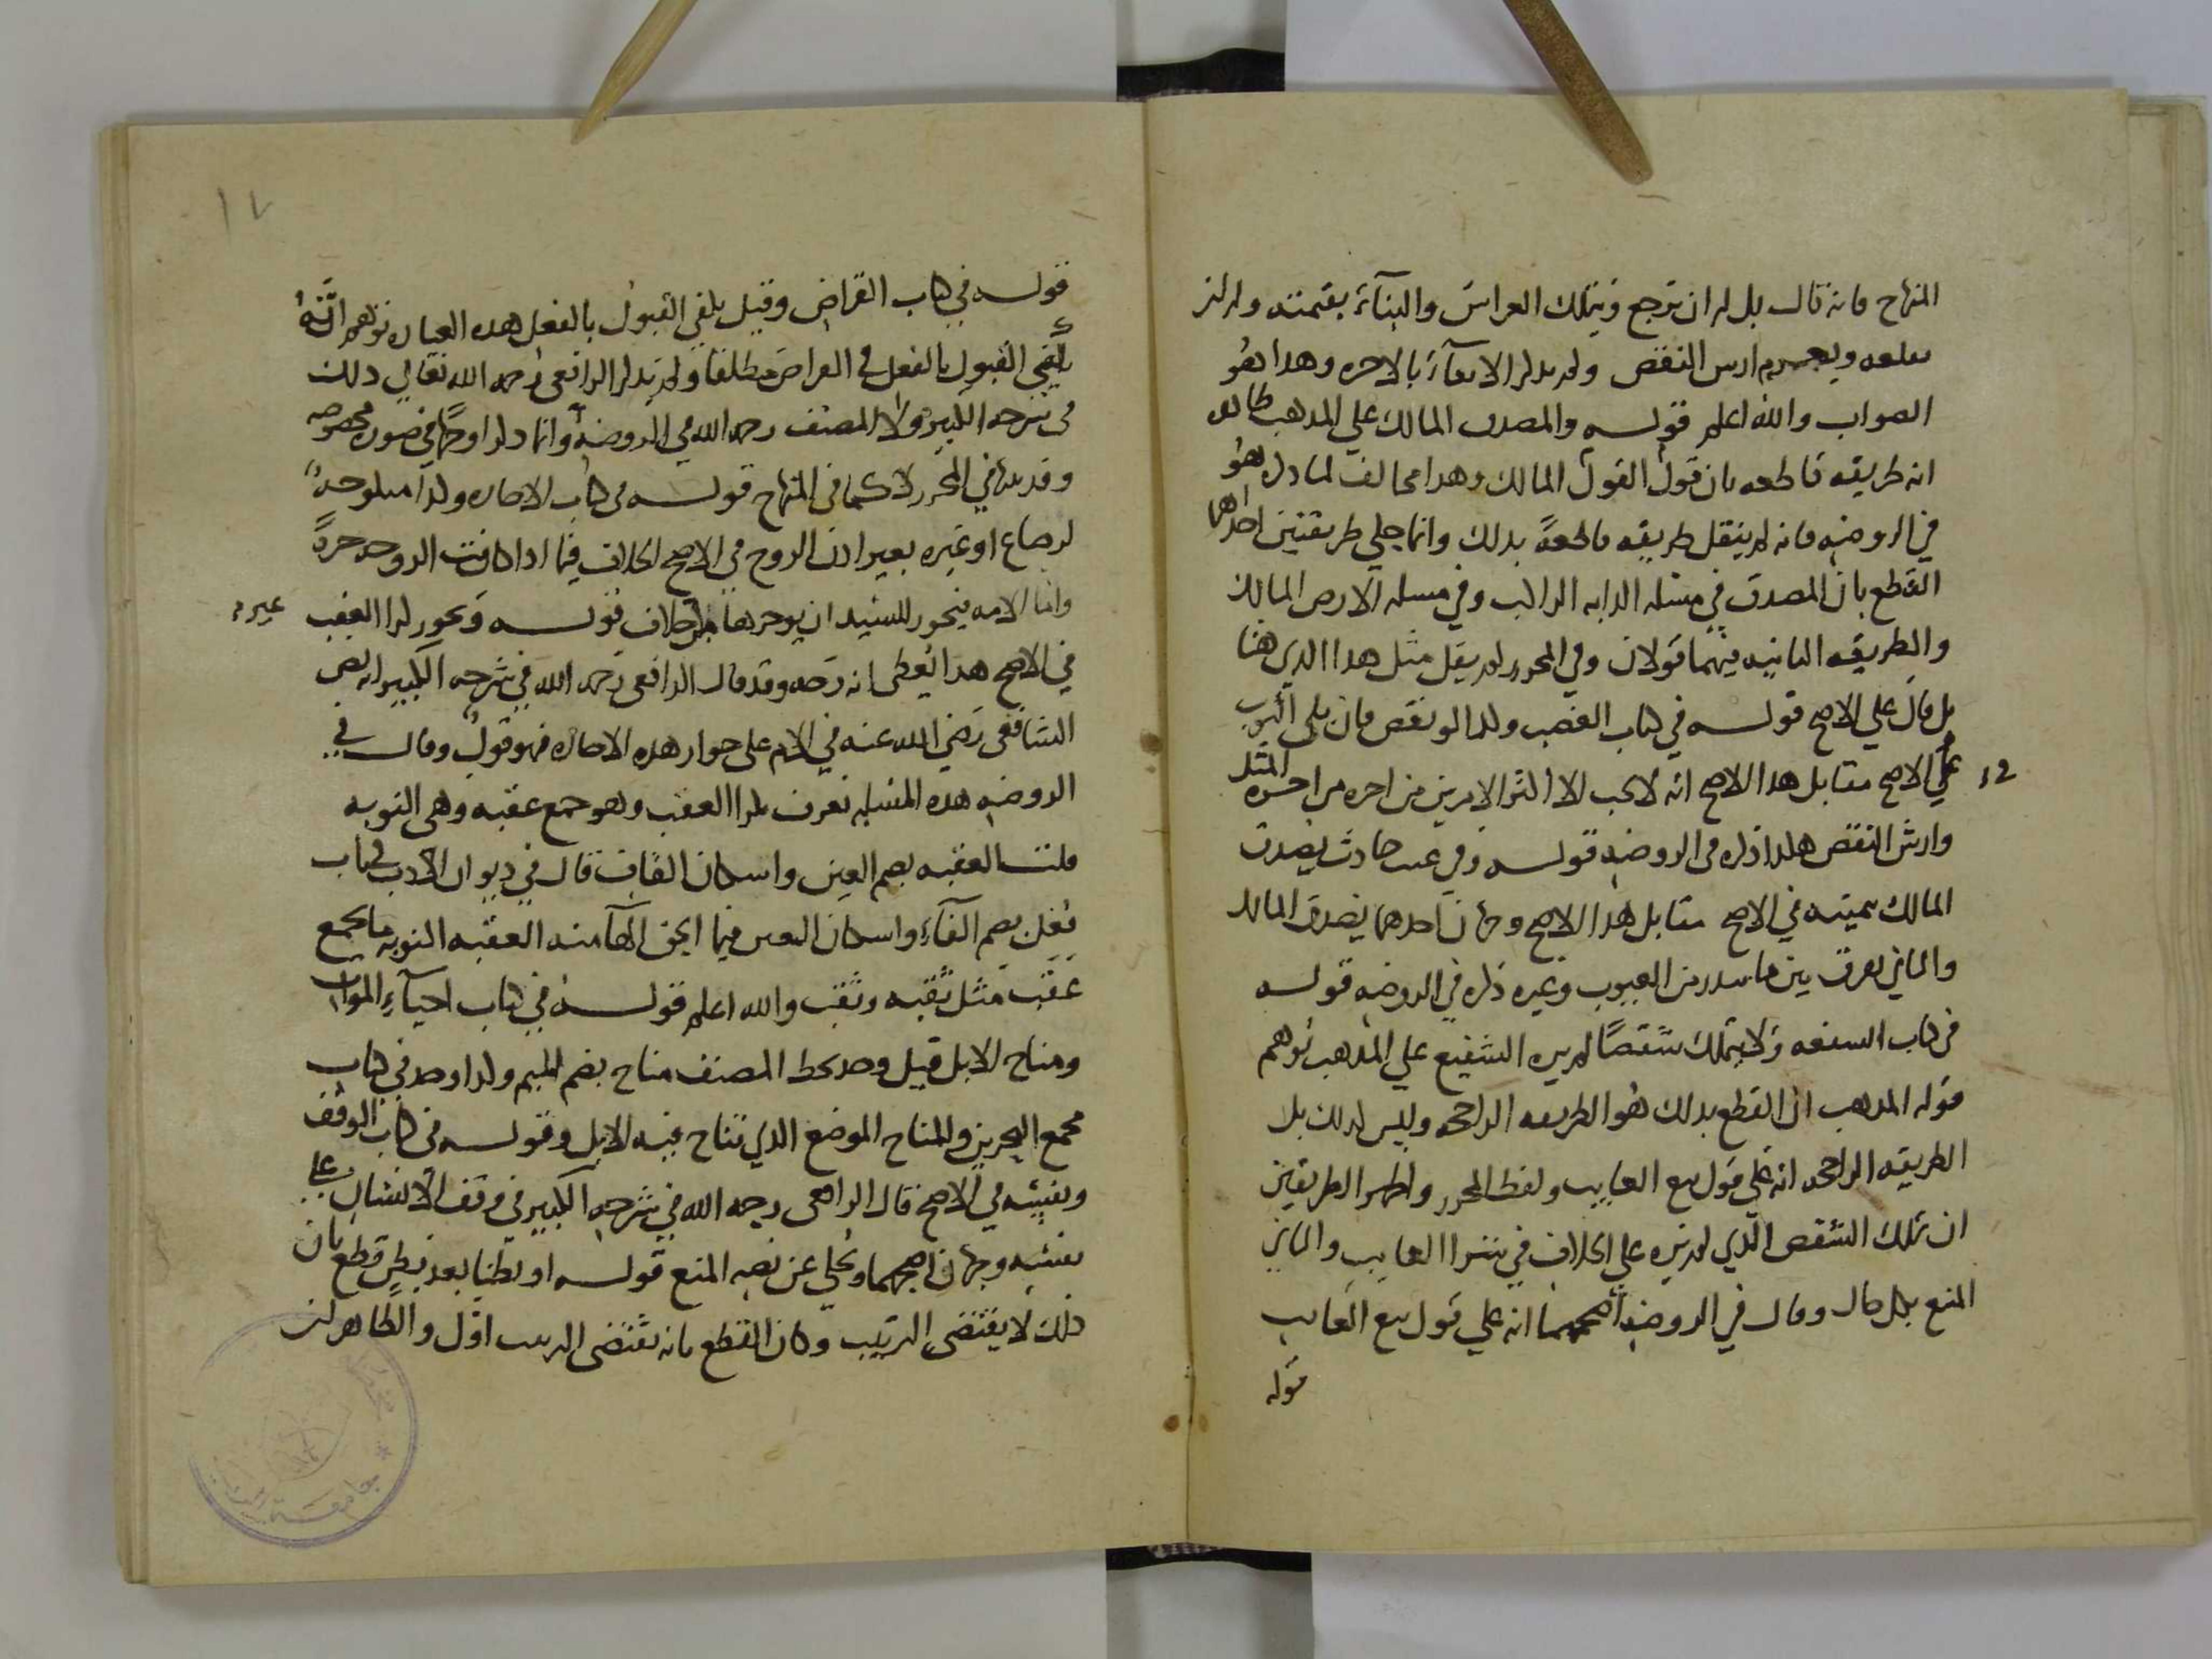 المنهاج فانه قال بل له ان يرجع ويتملك الغراس والبنآء بقيمته وله ان
يقلعه ويغرم ارش النقص ولم يذكر الابقآء بالاجره وهذا هو
الصواب والله اعلم قوله والمصدق المالك علي المذهب
انه طريقه قاطعه بان القول قول المالك وهذا مخالف لما ذكره هو
في الروضه فانه لم ينقل طريقه قاطعةً بذلك وانما حكي طريقتين احداهما
القطع بان المصدق في مسئله الدابه الراكب وفي مسله الارض المالك
والطريقه الثانيه فيهما قولان وفي المحرر لم يقل مثل هذا الذي هنا
بل قال علي الاصح قوله في كتاب الغصب وكذا لو نقص بان بلي الثوب
في الاصح مقابل هذا الاصح انه لا يجب الا اكثر الامرين من اجره المثل
وارش النقص هكذا ذكره في الروضه قوله وفي عيب حادث يصدق
المالك بيمينه في الاصح مقابل هذا الاصح وجهان احدهما يصدق المالك
والثاني يفرق بين ما يندر من العيوب وغيره ذكره في الروضه قوله
في كتاب الشفعه ولا يتملك شقصًا لم يره الشفيع علي المذهب توهم
قوله المذهب ان القطع بذلك هو الطريقه الراجحه وليس كذلك بل
الطريقه الراجحه انه علي قول بيع الغايب ولفظ المحرر واظهر الطريقين
ان تملك الشقص الذي لم يره علي الخلاف في شرا الغايب والثاني
المنع بكل حال وقال في الروضه اصحهما انه علي قول بيع الغايب
قوله
١٧
قوله في كتاب القراض وقيل يكفي القبول بالفعل هذه العباره توهم انَّهُ
يكفي القبول بالفعل في القراض مطلقا ولم يذكر الرافعي رحمه الله تعالي ذلك
في شرحه الكبير ولا المصنف رحمه الله في الروضه وانما ذكر اوجهًا في صوره مخصوصه
وقد في المحرر كما في المنهاج قوله في كتاب الاجاره وكذا منكوحه
لرضاع او غيره بغير اذن الزوج في الاصح الخلاف فيما اذا كانت الزوجه حرةً
واما الامه فيجوز للسيد ان يوجرها بلا خلاف قوله ويجوز كرا العقب
في الاصح هذا يعطي انه وجه وقد قال الرافعي رحمه الله في شرحه الكبير انه نص
الشافعي رَضي الله عنه في الام علي جواز هذه الاجاره فهو قول وقال في
الروضه هذه المسله تعرف بكرا العقب وهو جمع عقبه وهي النوبه
قلت العقبه بضم العين واسكان القاف قال في ديوان الادب في باب
فُعْل بضم الفآء واسكان العين فيما الحق الهآ منه العقبه النوبه يجمع
عقب مثل ثقبه وثقب والله اعلم قوله في كتاب احيآء الموات
ومناخ الابل قيل وجد بخط المصنف مناخ بضم الميم وكذا وجد في كتاب
مجمع البحرين والمناخ الموضع الذي تناخ فيه الابل وقوله في كتاب الوقف
ونفسه في الاصح قال الرافعي رحمه الله في شرحه الكبير في وقف الانسان علي
نفسه وجهان اصحهما ويحكي عن نصه المنع قوله او بطنا بعد بطن قطع بان
ذلك لا يقتضي الترتيب وكان القطع بانه يقتضي الترتيب اولي والظاهر ان